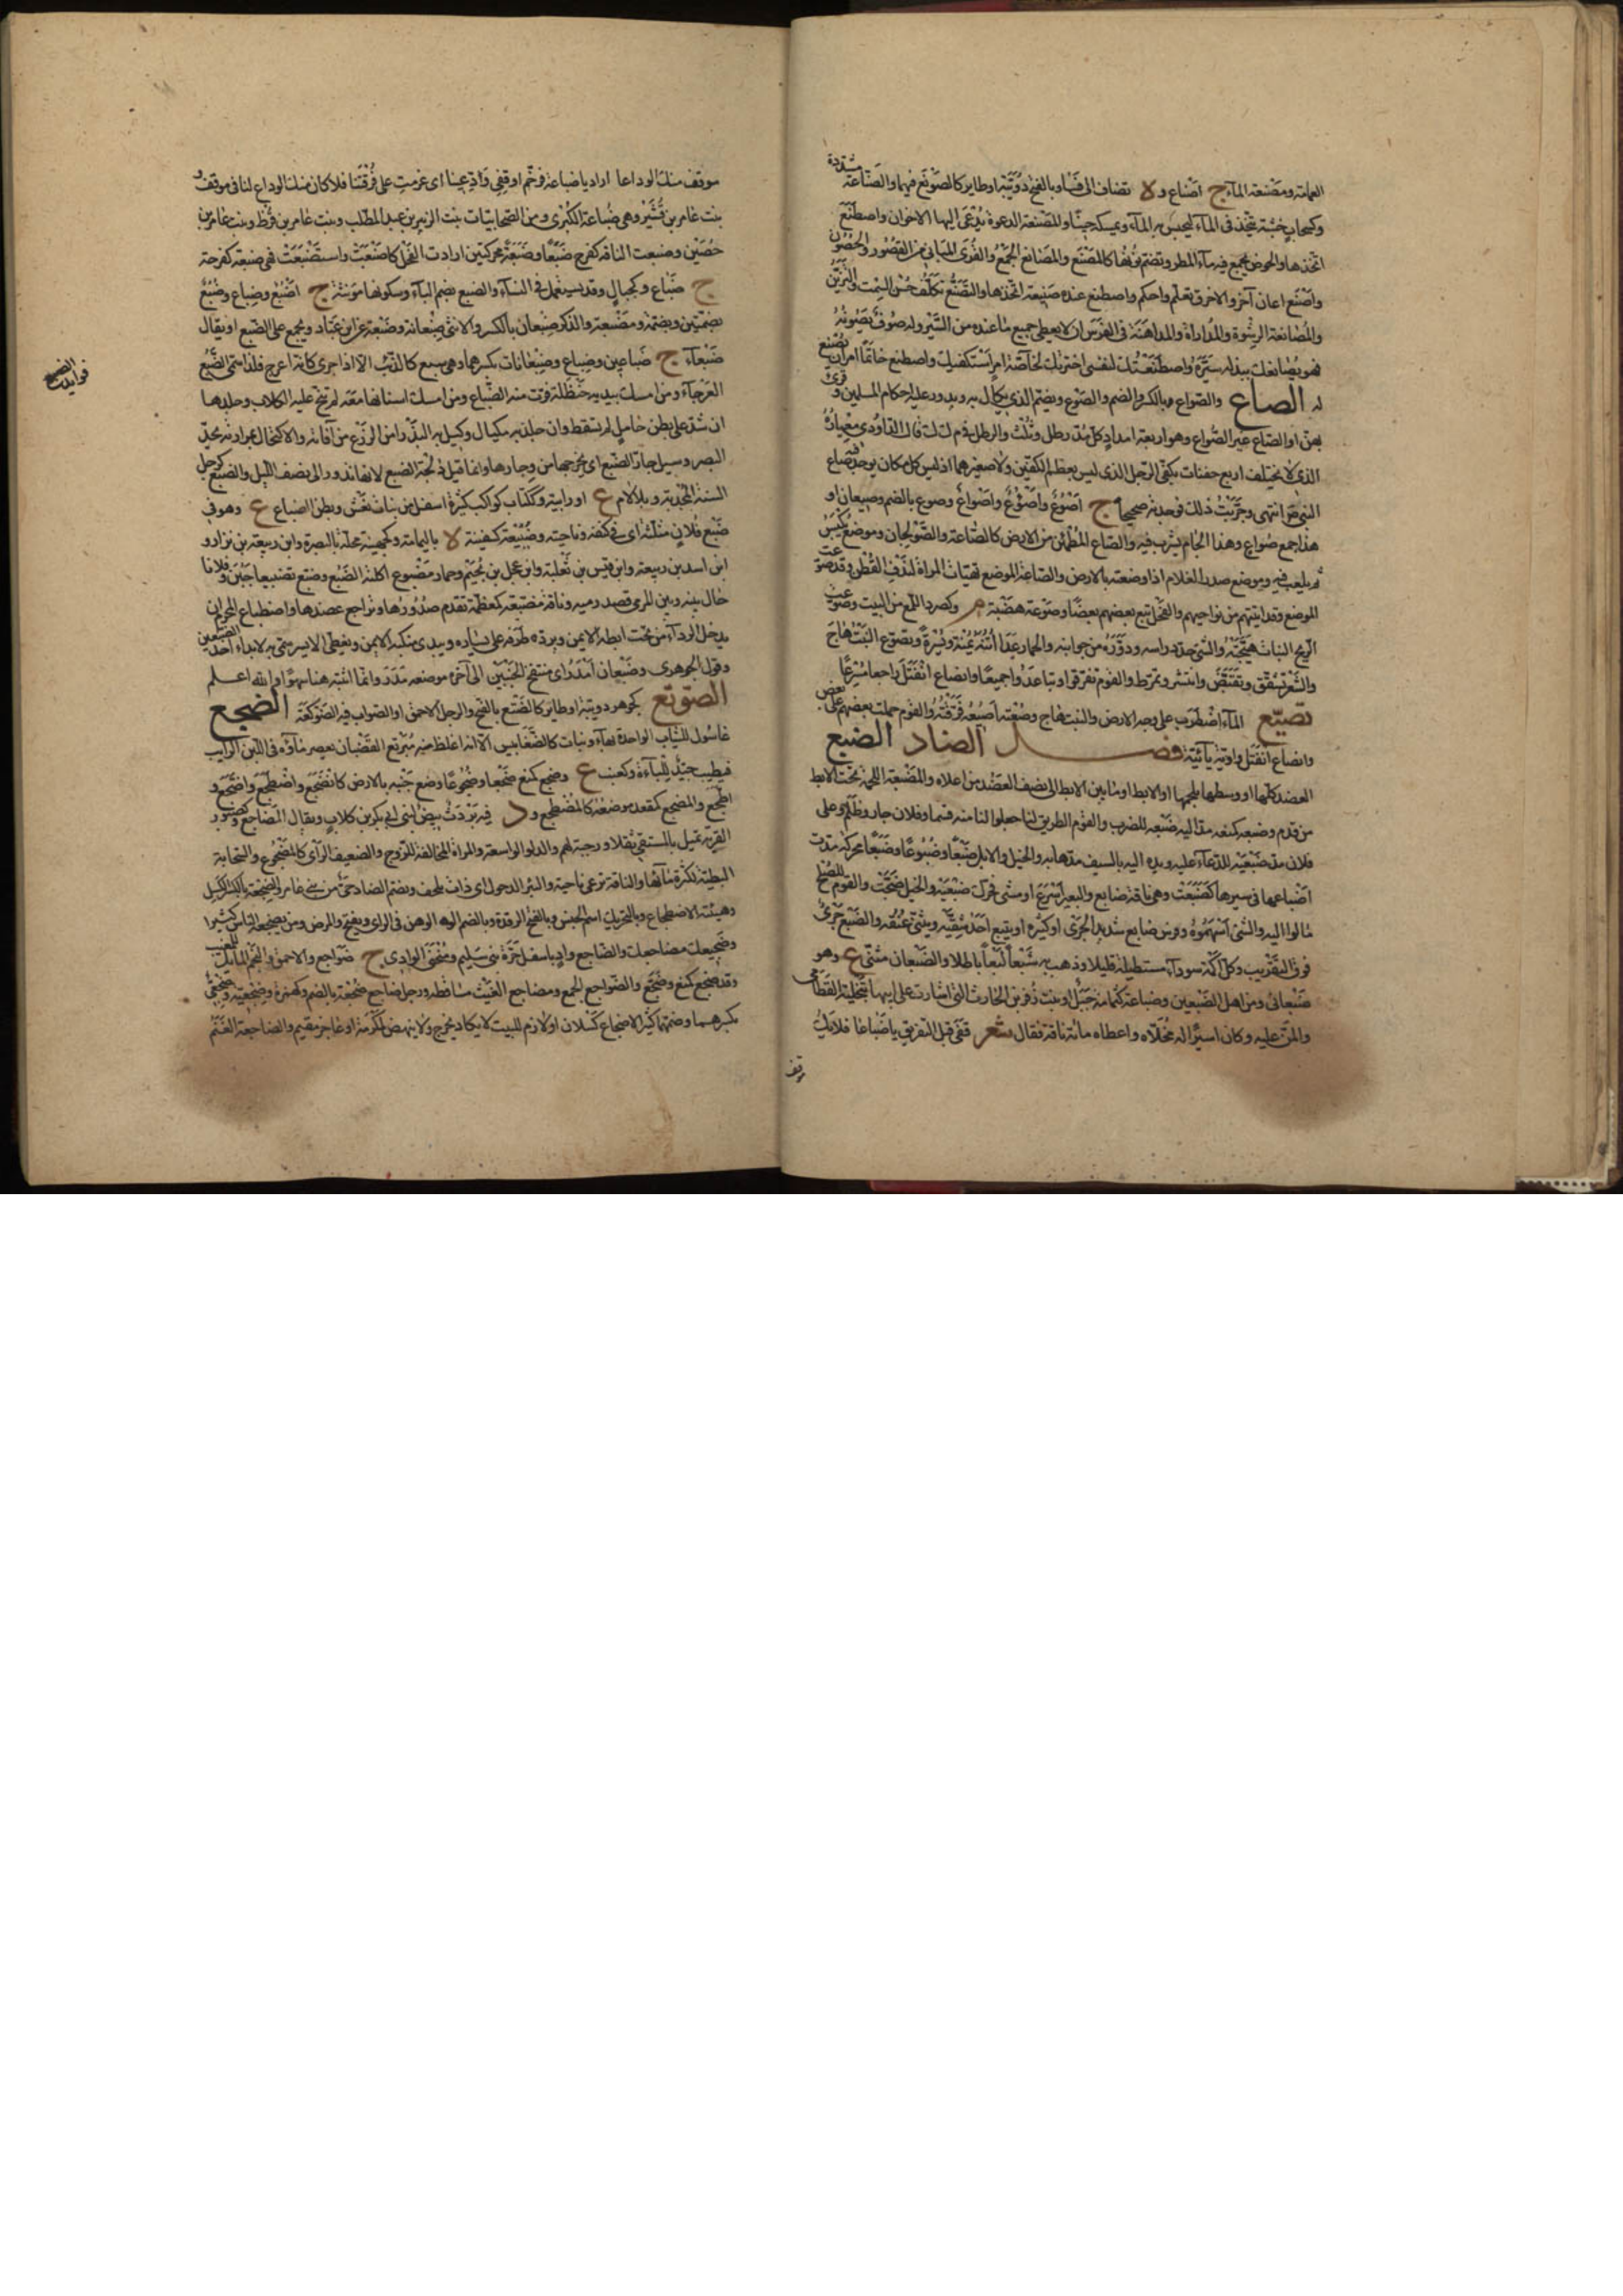 العامة ومصنعة الماء ج اصناع و لا تضاف الى فساد بالفتح دويبة او طاير كالصونع فيهما والصناعة مشددة
وكسحاب خشبة تتخذ فى الماء ليحبس به الماء ويمسكه حينا والمصنعة الدعوة يدعى اليها الاخوان واصطنع
اتخذها والحوض يجمع فيه ماء المطر وتضم نونها كالمصنع والمصانع الجمع والقرى المبانى من القصور والحصون
واصنع اعان آخر والاخرق تعلم واحكم واصطنع عنده صنيعة اتخذها والتصنع تكلف حسن السمت والتزين
والمصانعة الرشوة والمداراة والمداهنة فى الفرس ان لا يعطى جميع ما عنده من السير وله صوف يصونه
فهو يصانعك ببذله سيره واصطنعتك لنفسى اخترتك لخاصة امر استكفيك واصطنع خاتما امر ان يصنع
له الصاع والصواع وبالكسر والضم والصوع ويضم الذى يكال به ويدور عليه احكام المسلمين وقرئ
بهن او الصاع غير الصواع وهو اربعة امداد كل مد رطل وثلث والرطل فى م ل ك قال الداودى معياره
الذى لا يختلف اربع حفنات بكفى الرجل الذى ليس بعظيم الكفين ولا صغيرهما اذ ليس كل مكان يوجد فيه صاع
النبى انتهى وجربت ذلك فوجدته صحيحا ج اصوع واصؤع واصواع وصوع بالضم وصيعان او
هذا جمع صواع وهذا الجام يشرب فيه والصاع المطمئن من الارض كالصاعة والصولجان وموضع يكنس
ثم يلعب فيه وموضع صدر النعام اذا وضعته بالارض والصاعة الموضع تهيئه المراة لندف القطن وقد صوعت
الموضع وقد اتيتهم من نواحيهم والفحل اتبع بعضهم بعضا وصوعة هضبة م وكصرد اللمع من البيت وصوعت
الريح النبات هيجته والشىء حدد راسه ودوره من جوانبه والحمار عدل اتنه يمنة ويسرة وتصوع النبت هاج
والشعر تشقق وتقبض وانتشر وتمرط والقوم تفرقوا وتباعدوا جميعا وانصاع انفتل راجعا مسرعا
تصيع الماء اضطرب على وجه الارض والنبت هاج وصعته اصيعه فرقته والقوم حملت بعضهم على بعض
وانصاع انفتل واوية يائية فصل الضاد الضبع
العضد كلها او وسطها بلحمها او الابط او ما بين الابط الى نصف العضد من اعلاه والمضبعة اللحمة تحت الابط
من قدم وضبعه كمنعه مد اليه ضبعه للضرب والقوم الطريق لنا جعلوا لنا منه قسما وفلان جار وظلم وعلى
فلان مد ضبعيه للدعاء عليه ويده اليه بالسيف مدها به والخيل والابل ضبعا وضبوعا وضبعا محركة مدت
اضباعها فى سيرها كضبعت وهى ناقة ضابع والبعير اسرع او مشى فحرك ضبعيه والخيل ضبحت والقوم للصلح
مالوا اليه والشىء اسهموه وفرس ضابع شديد الجرى او كثيره او يتبع احد شقيه ويثنى عنقه والضبع جرى
فوق التقريب وكل اكمة سوداء مستطيلة قليلا وذهب به ضبعا لبعا باطلا والضبعان مثنى ع وهو
ضبعانى ومن اهل الضبعين وضباعة كثمامة جبل او بنت زفر بن الحارث التى اشارت على ابيها بتخلية القطامى
والمن عليه وكان اسيرا له فخلاه واعطاه مائة ناقة فقال شعر قفى قبل التفرق يا ضباعا فلا يك
موقف
موقف منك الوداعا اراد يا ضباعة فرخم او قفى وادعينا اى عزمت على فرقتنا فلا كان منك الوداع لنا فى موقف و
بنت عامر بن قشير وهى ضباعة الكبرى ومن الصحابيات بنت الزبير بن عبد المطلب وبنت عامر بن قرظ وبنت عامر بن
حصين وضبعت الناقة كفرح ضبعا وضبعة محركتين ارادت الفحل كاضبعت واستضبعت فهى ضبعة كفرحة
ج ضباع وكحبالى وقد يستعمل فى النساء والضبع بضم الباء وسكونها مؤنثة ج اضبع وضباع وضبع
بضمتين وبضمة ومضبعة والذكر ضبعان بالكسر والانثى ضبعانة وضبعة عن ابن عباد ويجمع على الضبع او يقال
ضبعاء ج ضباعين وضباع وضبعانات بكسرهما وهى سبع كالذئب الا اذا جرى كانه اعرج فلذا سمى الضبع
العرجاء ومن امسك بيده حنظلة فرت منه الضباع ومن امسك اسنانها معه لم تنبح عليه الكلاب وجلدها
ان شد على بطن حامل لم تسقط وان جلد به مكيال وكيل به البذر امن الزرع من آفاته والاكتحال بمرارته يحد
البصر وسيل جار الضبع اى يخرجها من وجارها وانما قيل دلجة الضبع لانها تدور الى نصف الليل والضبع كرجل
السنة المجدبة وبلا لام ع او رابية وككتاب كواكب كثيرة اسفل من بنات نعش وبطن الضباع ع وهو فى
ضبع فلان مثلثة اى فى كنفه وناحيته وضبيعة كسفينة لا باليمامة وكجهينة محلة بالبصرة وابن ربيعة بن نزار و
ابن اسد بن ربيعة وابن قيس بن ثعلبة وابن عجل بن لجيم وحمار مضبوع اكلته الضبع وضبع تضبيعا جبن وفلانا
حال بينه وبين المرمى قصد رميه وناقة مضبعة كمعظمة تقدم صدورها وتراجع عضدها واضطباع المحرم ان
يدخل الرداء من تحت ابطه الايمن ويرد طرفه على يساره ويبدى منكبه الايمن ويغطى الايسر سمى به لابداء احد الضبعين
وقول الجوهرى وضبعان امدر اى منتفخ الجنبين الى آخره موضعه م د ر وانما اثبته هنا سهوا والله اعلم
الضوتع كجوهر دويبة او طاير كالضتع بالفتح والرجل الاحمق او الصواب فيه الضوكعة الضجع
غاسول للثياب الواحدة بهاء ونبات كالضغابيس الا انه اغلظ منه مربع القضبان يعصر ماؤه فى اللبن الرايب
فيطيب جيد للباءة وكعنب ع وضجع كمنع ضجعا وضجوعا وضع جنبه بالارض كانضجع واضطجع واضجع و
اطجع والمضجع كمقعد موضعه كالمضطجع و د فيه برد ث بيض لبنى ابى بكر بن كلاب ويقال المضاجع وكصبور
القربة تميل بالمستقى ثقلا ورحبة لهم والدلو الواسعة والمراة المخالفة للزوج والضعيف الراى كالمضجوع والسحابة
البطيئة لكثرة مائها والناقة ترعى ناحية والبئر الدحول اى ذات تلجف وبضم الضاد حى من بنى عامر والضجعة بالكسر الكسل
وهيئة الاضطجاع وبالتحريك اسم الجنس وبالفتح الرقدة وبالضم الوهن فى الراى ويفتح والمرض ومن يضجعه الناس كثيرا
وضجيعك مضاجعك والضاجع واد باسفل حرة بنى سليم ومنحنى الوادى ج ضواجع والاحمق والنجم المايل للمغيب
وقد ضجع كمنع وضجع والضواجع الجمع ومضاجع الغيث مساقطه ورجل ضاجع ضجعة بالضم وكهمزة وضجعية وضجعى
بكسرهما وضمهما كثير الاضجاع كسلان او لازم للبيت لا يكاد يخرج ولا ينهض لمكرمة او عاجز مقيم والضاجعة الغنم
فوايد الضبع